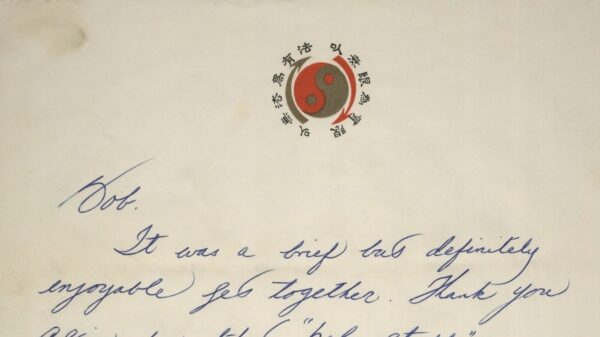 以無法為有法
以無限為有限
Bob.
It was a brief but definitely
enjoyable get together. Thank you
again